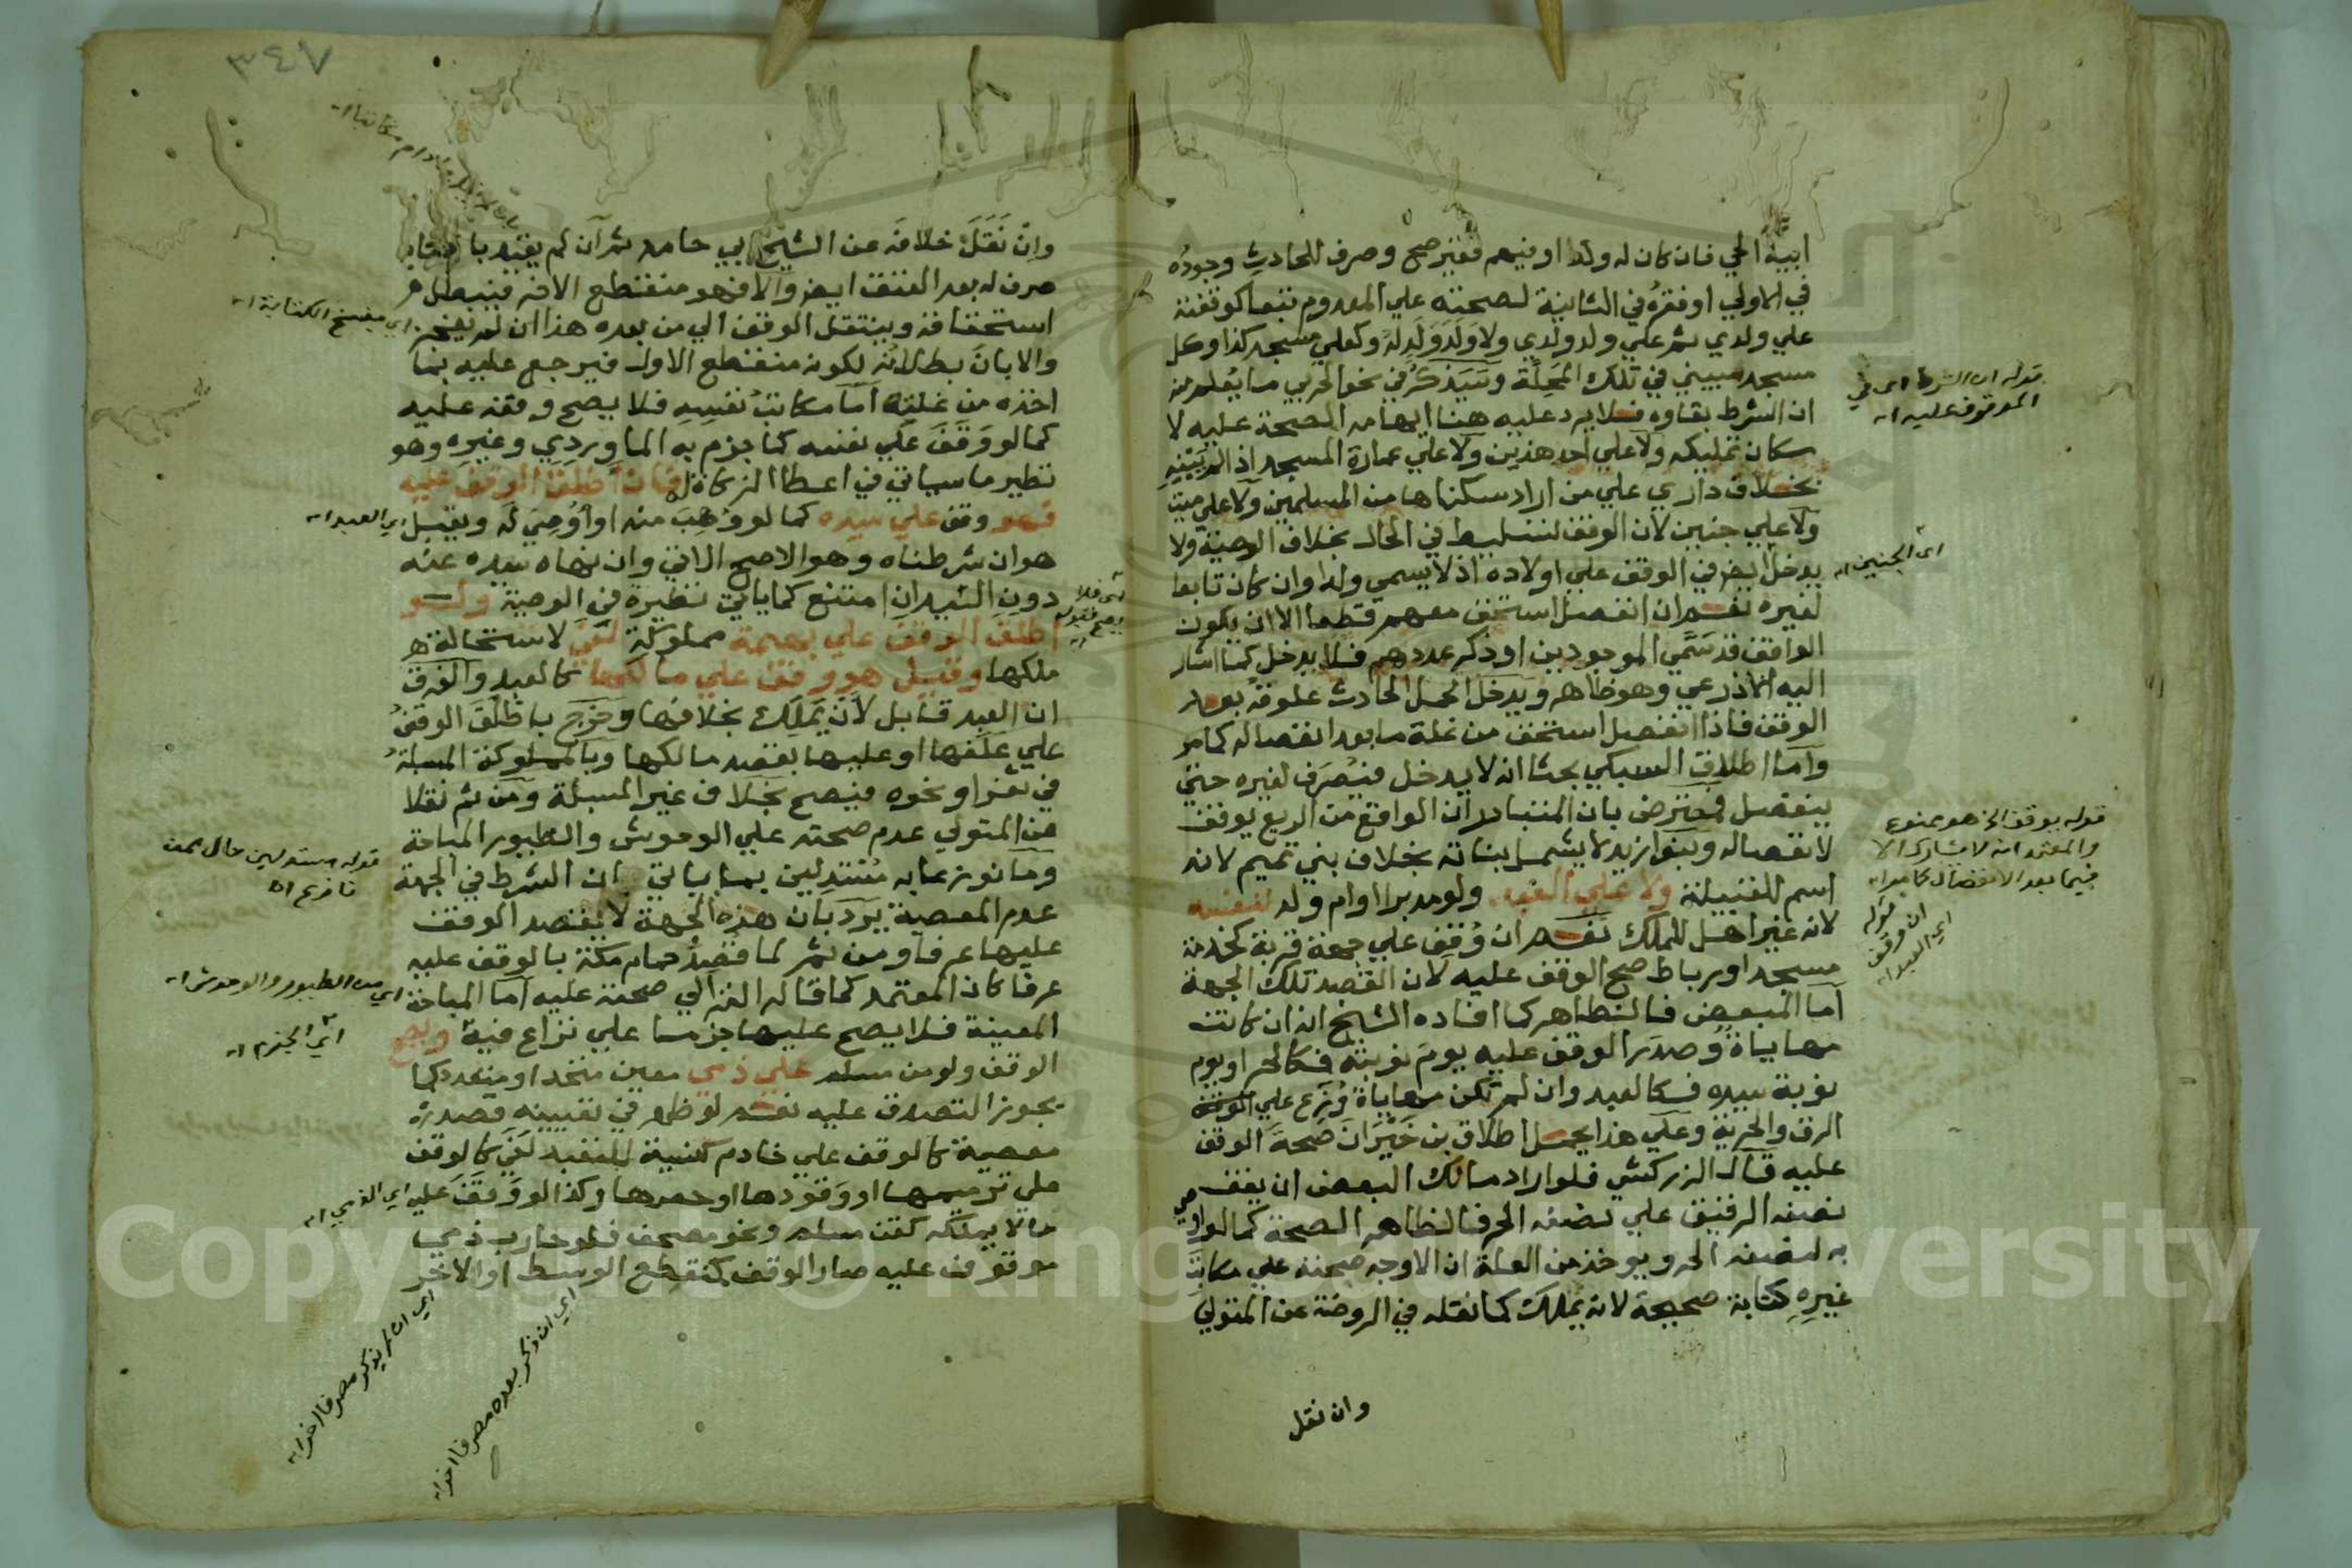 ابيه الحي فان كان له ولد او فيهم فقير صح وصرف للحادث وجوده
في الاولي او فقره في الثانية لصحته علي المعدوم تبعا كوقفته
علي ولدي ثم علي ولد ولدي ولا ولد ولد له وكعلي مسجد كذا وكل
مسجد سيبني في تلك المحلة وسيذكر في نحو الحربي ما يعلم منه
ان الشرط بقاوه فلا يرد عليه هنا ايهامه الصحة عليه لا
مكان تمليكه ولا علي احد هذين ولا علي عمارة المسجد اذا لم يبينه
بخلاف داري علي من اراد سكناها من المسلمين ولا علي ميت
ولا علي جنين لان الوقف تسليط في الحال بخلاف الوصية ولا
يدخل ايضا في الوقف علي اولاده اذ لا يسمي ولدا وان كان تابعا
لغيره نعم ان انفصل استحق معهم قطعا الا ان يكون
الواقف قد سمي الموجودين او ذكر عددهم فلا يدخل كما اشار
اليه الاذرعي وهو ظاهر ويدخل الحمل الحادث علوقه بعد
الوقف فاذا انفصل استحق من غلة ما بعد انفصاله كما مر
واما اطلاق السبكي بحثا انه لا يدخل فيصرف لغيره حتي
ينفصل فمعترض بان المتبادر ان الواقع من الريع يوقف
لانفصاله وبنو ازيد لا يشمل بناته بخلاف بني تميم لانه
اسم للقبيلة ولا علي العبد ولو مدبرا او ام ولد لنفسه
لانه غير اهل للملك نعم ان وقف علي جهة قربة كخدمة
مسجد او رباط صح الوقف عليه لان القصد تلك الجهة
اما المبعض فالظاهر كما افاده الشيخ انه ان كانت
مهاياة وصدر الوقف عليه يوم نوبته فكالحر او يوم
نوبة سيده فكالعبد وان لم تكن مهاياة وزع علي
الرق والحرية وعلي هذا يحمل اطلاق بن خيران صحة الوقف
عليه قال الزركشي فلو اراد مالك البعض ان يقف
نصفه الرقيق علي نصفه الحر فالظاهر الصحة كما لو اوصي
به لنصفه الحر ويوخذ من العلة ان الاوجه صحته علي مكاتب
غيره كتابة صحيحة لانه يملك كما نقله في الروضة عن المتولي
وان نقل
قوله ان الشرط اي في
الموقوف عليه اه
اي الجنين اه
قوله يوقف الخ هو ممنوع
والمعتمد انه لا يشارك الا
فيما بعد الانفصال كما مر اه
قوله
ان وقف
اي العبد اه
٣٤٧
وان نقل خلافه عن الشيخ ابي حامد ثم ان لم يقيد بالكتابة
صرف له بعد العتق ايضا والا فهو منقطع الاخر فيبطل
استحقاقه وينتقل الوقف الي من بعده هذا ان لم يعجز
والا بان بطلانه لكونه منقطع الاول فيرجع عليه بما
اخذه من غلته اما مكاتب نفسه فلا يصح وقفه عليه
كما لو وقف علي نفسه كما جزم به الماوردي وغيره وهو
نظير ما سياتي في اعطا الزكاة له فان اطلق الوقف عليه
فهو وقف علي سيده كما لو وهب منه او اوصي له ويقبل
هو ان شرطناه وهو الاصح الاتي وان نهاه سيده عنه
دون السيد ان امتنع كما ياتي نظيره في الوصية ولو
اطلق الوقف علي بهيمة مملوكة لغي لاستحالة
ملكها وقيل هو وقف علي مالكها كالعبد والفرق
ان العبد قابل لان يملك بخلافها وخرج باطلق الوقف
علي علفها او عليها بقصد مالكها وبالمملوكة المسبلة
في ثغر او نحوه فيصح بخلاف غير المسبلة ومن ثم نقلا
عن المتولي عدم صحته علي الوحوش والطيور المباحة
وما نوزعا به مستدلين بما ياتي ان الشرط في الجهة
عدم المعصية يرد بان هذه الجهة لا يقصد الوقف
عليها عرفا ومن ثم لما قصد حمام مكة بالوقف عليه
عرفا كان المعتمد كما قاله الغزالي صحته عليه اما المباحة
المعينة فلا يصح عليها جزما علي نزاع فيه ويصح
الوقف ولو من مسلم علي ذمي معين متحدا او متعدد كما
يجوز التصدق عليه نعم لو ظهر في تعيينه قصد
معصية كالوقف علي خادم كنيسة للتعبد لغي كالوقف
علي ترميمها او وقودها او حصرها وكذا لو وقف عليه
ما لا يملكه كقن مسلم ونحو مصحف فلو حارب ذمي
موقوف عليه صار الوقف كمنقطع الوسط او الاخر
اي بفسخ الكتابة اه
اي العبد اه
قوله مستدلين حال ممن
نازع اه
اي من الطيور والوحوش اه
اي الجزم اه
اي الذمي اه
اي ان لم يذكر مصرفا اخر اه
اي ان ذكر بعده مصرفا اخر اه
Copyright © King Saud University